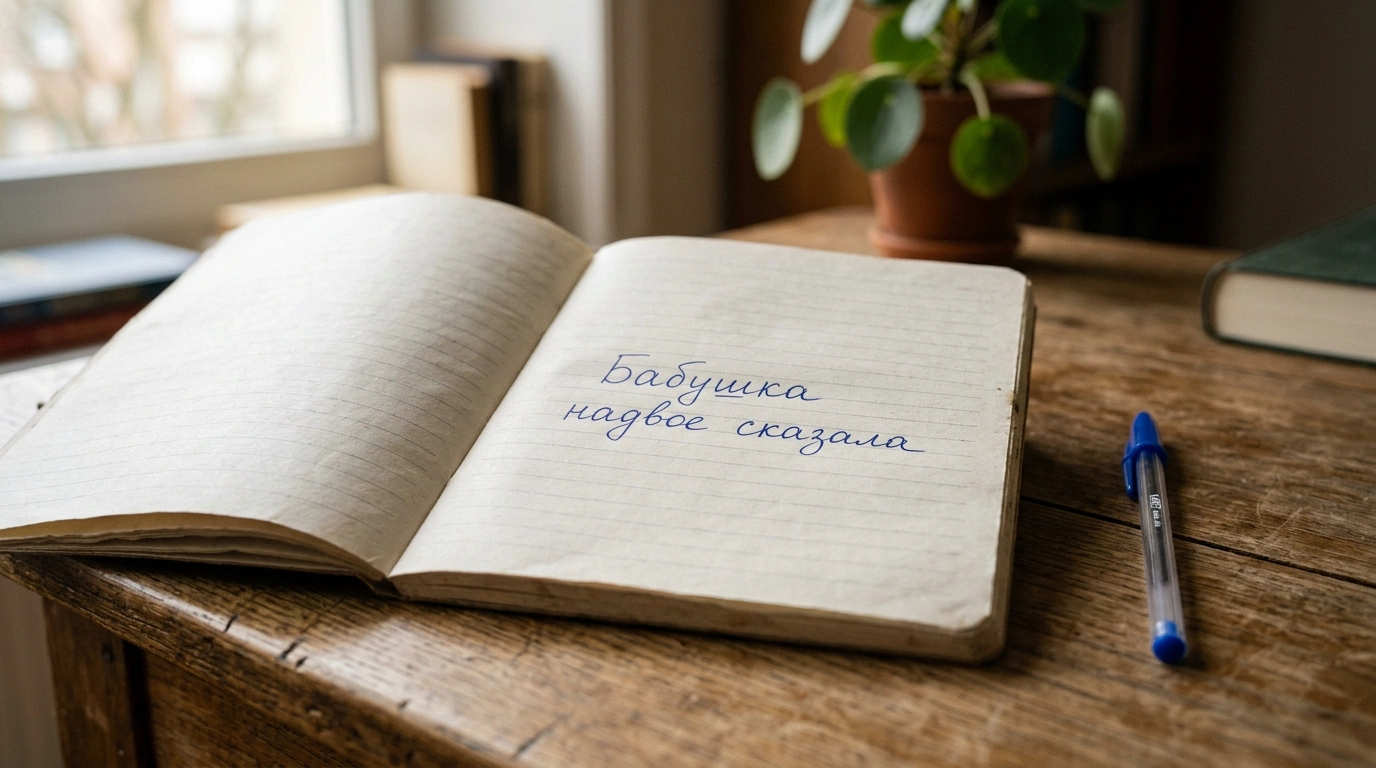 Бабушка
надвое сказала